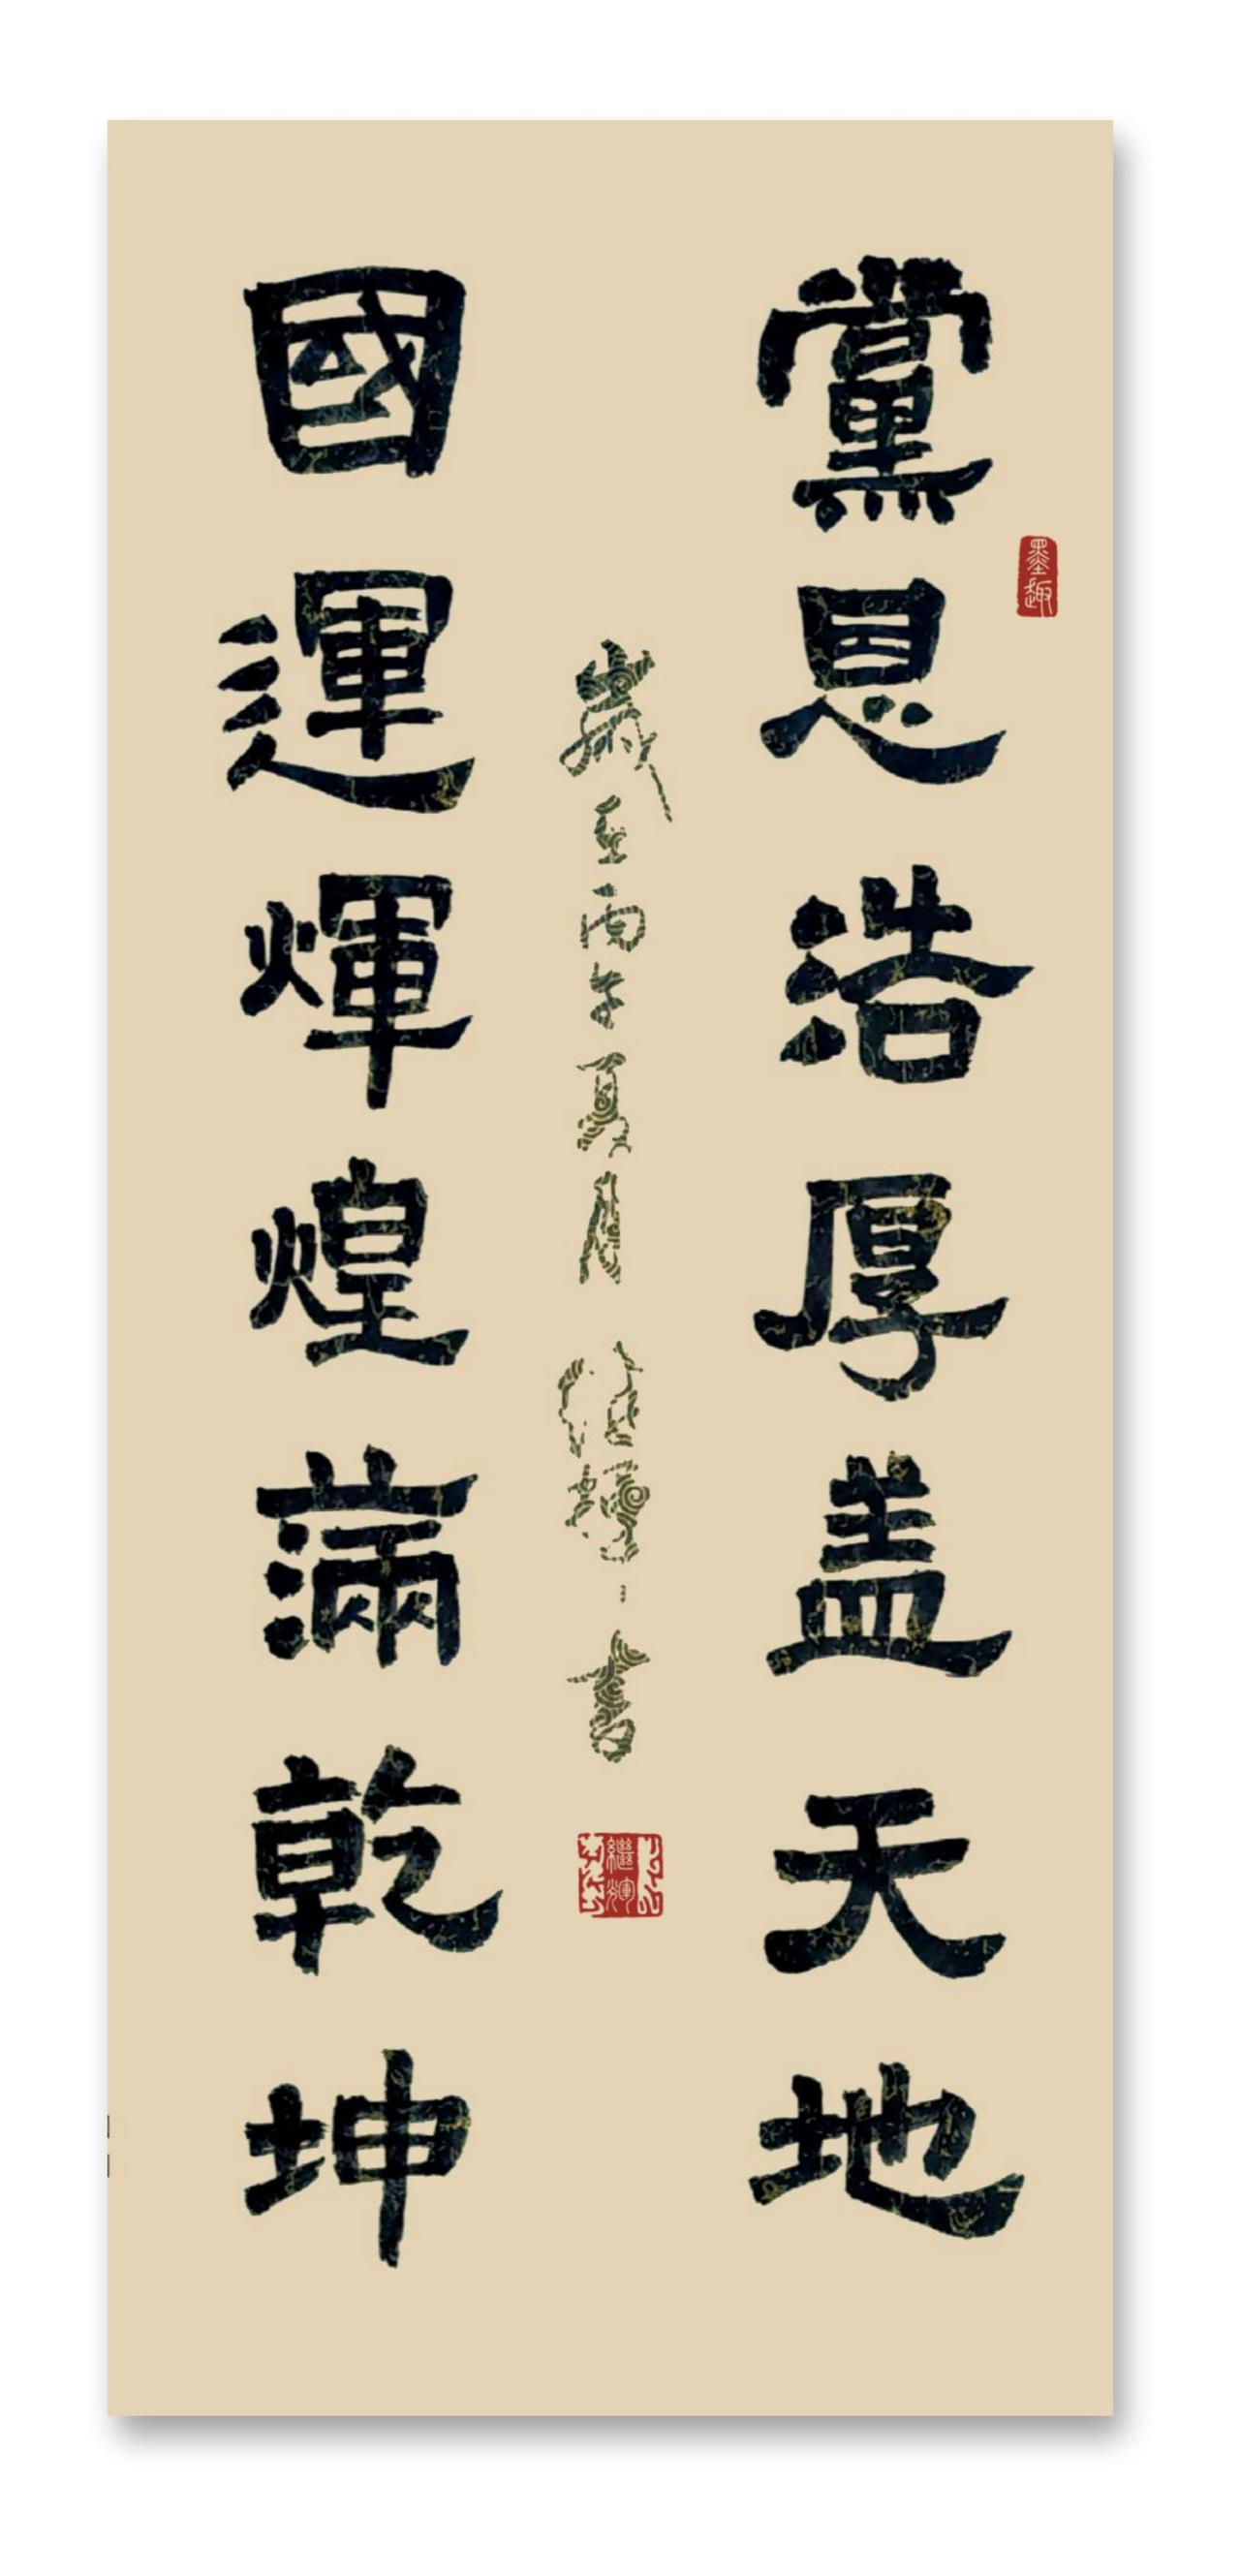 墨趣
黨恩浩厚盖天地
國運煇煌滿乾坤
歲在丙午夏月 继煇書
繼煇